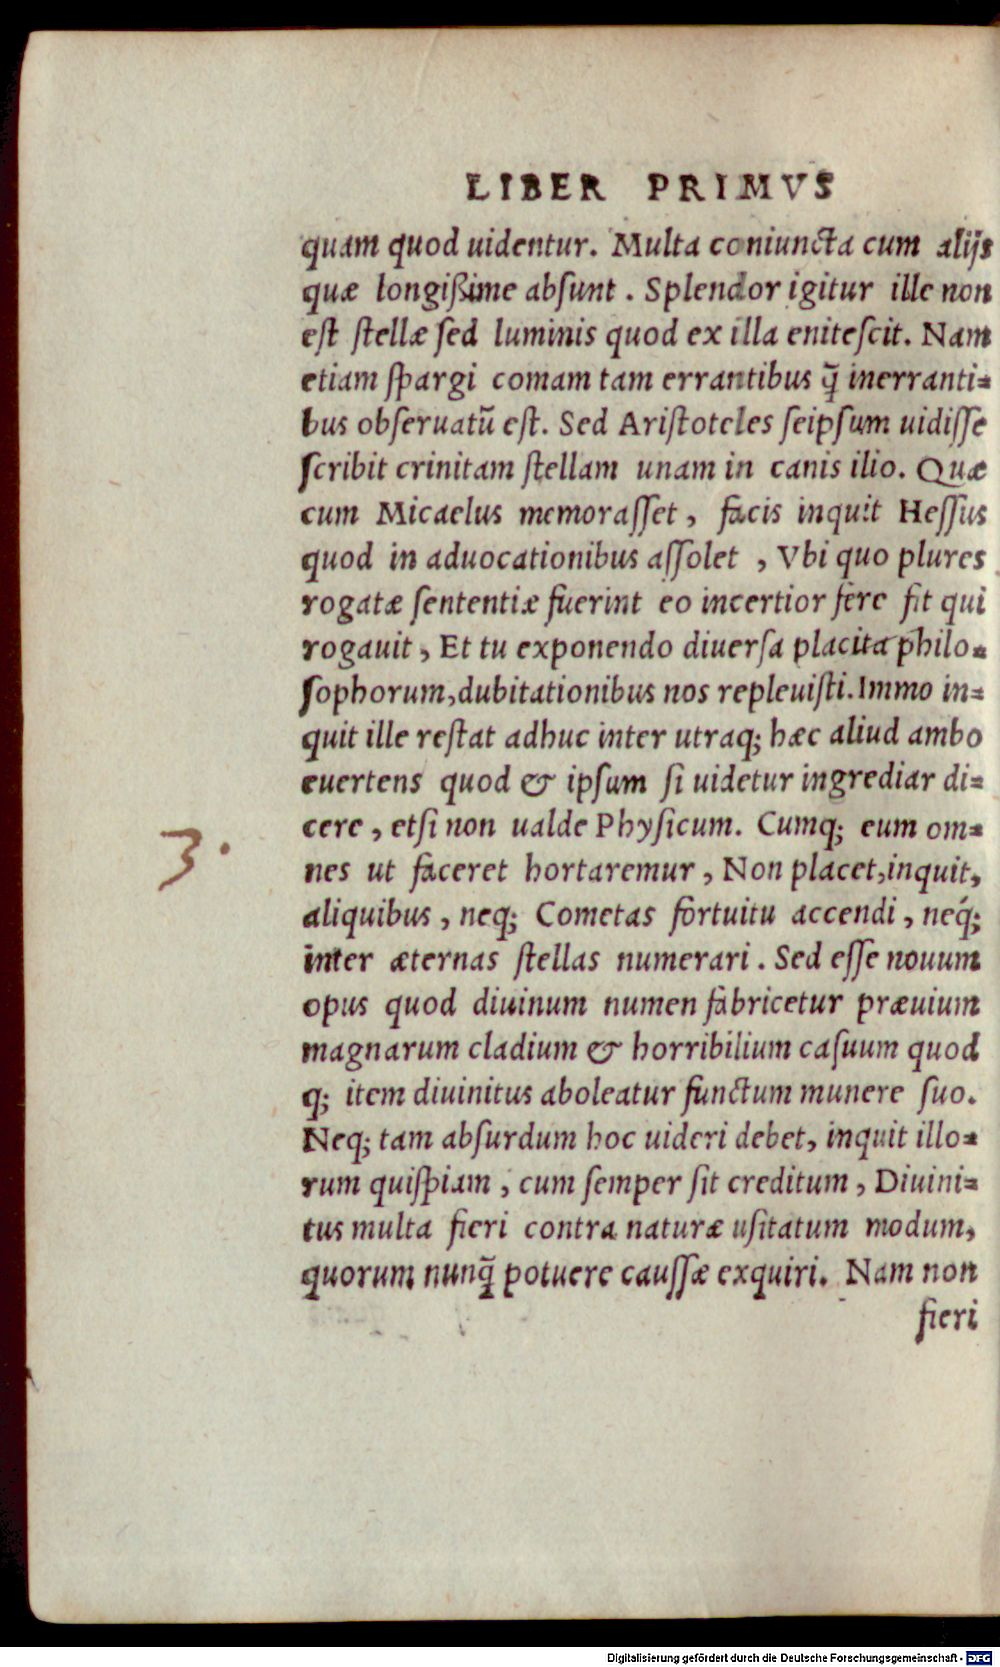 LIBER PRIMVS
quam quod uidentur. Multa coniuncta cum alijs
quæ longißime absunt. Splendor igitur ille non
est stellæ sed luminis quod ex illa enitescit. Nam
etiam spargi comam tam errantibus q̃ inerranti=
bus obseruatũ est. Sed Aristoteles seipsum uidisse
scribit crinitam stellam unam in canis ilio. Quæ
cum Micaelus memorasset, facis inquit Hessus
quod in aduocationibus assolet, Vbi quo plures
rogatæ sententiæ fuerint eo incertior fere fit qui
rogauit, Et tu exponendo diuersa placita philo=
sophorum, dubitationibus nos repleuisti. Immo in=
quit ille restat adhuc inter utraq; hæc aliud ambo
euertens quod & ipsum si uidetur ingrediar di=
cere, etsi non ualde Physicum. Cumq; eum om=
nes ut faceret hortaremur, Non placet, inquit,
aliquibus, neq; Cometas fortuitu accendi, neq́;
inter æternas stellas numerari. Sed esse nouum
opus quod diuinum numen fabricetur præuium
magnarum cladium & horribilium casuum quod
q; item diuinitus aboleatur functum munere suo.
Neq; tam absurdum hoc uideri debet, inquit illo=
rum quispiam, cum semper sit creditum, Diuini=
tus multa fieri contra naturæ usitatum modum,
quorum nunq̃ potuere caussæ exquiri. Nam non
fieri
3.
Digitalisierung gefördert durch die Deutsche Forschungsgemeinschaft - DFG